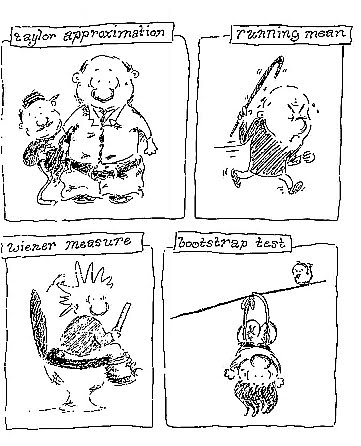 taylor approximation
running mean
wiener measure
bootstrap test